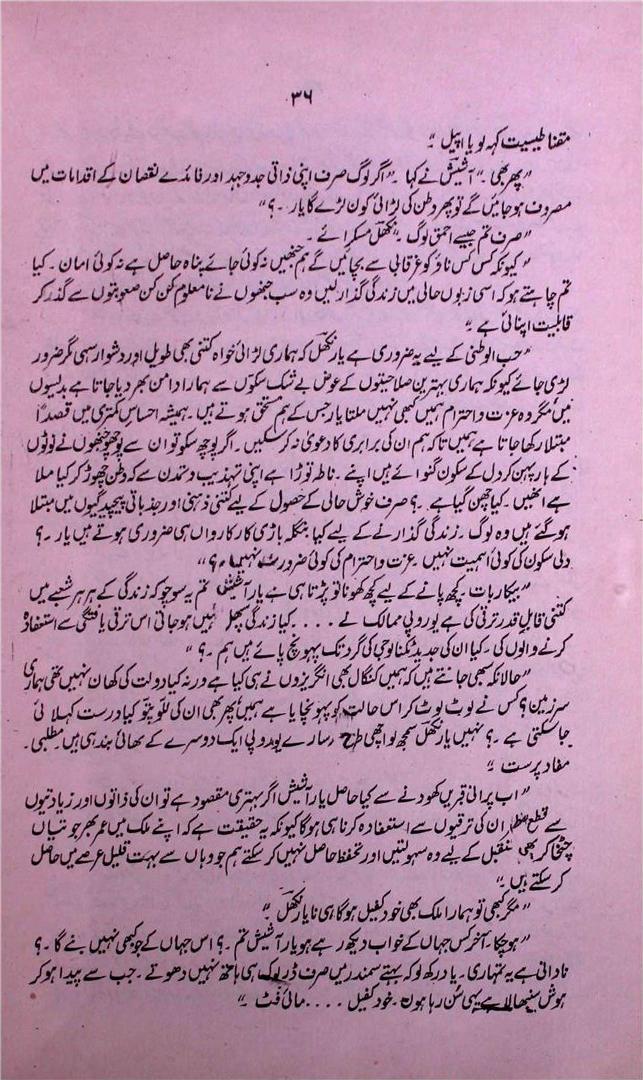 ۳۶
مقناطیسیت کہہ لو یا اپیل ۔"
"پھر بھی ۔" آشیش نے کہا ۔ "اگر لوگ صرف اپنی ذاتی جدوجہد اور فائدے نقصان کے اقدامات میں
مصروف ہو جائیں گے تو پھر وطن کی لڑائی کون لڑے گا یار ۔ ؟"
"صرف تم جیسے احمق لوگ ۔" نکھل مسکرائے ۔
"کیونکہ کس کس ناؤ کو غرقابی سے بچائیں گے ہم جنھیں نہ کوئی جائے پناہ حاصل ہے نہ کوئی امان ۔ کیا
تم چاہتے ہو کہ اسی زبوں حالی میں زندگی گذار لیں وہ سب جنھوں نے نامعلوم کن کن صعوبتوں سے گذر کر
قابلیت اپنائی ہے ۔"
"حب الوطنی کے لیے یہ ضروری ہے یار نکھل کہ ہماری لڑائی خواہ کتنی بھی طویل اور دشوار سہی مگر ضرور
لڑی جائے کیونکہ ہماری بہترین صلاحیتوں کے عوض بے شک سکوں سے ہمارا دامن بھر دیا جاتا ہے بدلیسوں
میں مگر وہ عزت و احترام ہمیں کبھی نہیں ملتا یار جس کے ہم مستحق ہوتے ہیں ۔ ہمیشہ احساسِ کمتری میں قصداً
مبتلا رکھا جاتا ہے ہمیں تاکہ ہم ان کی برابری کا دعویٰ نہ کرسکیں ۔ اگر پوچھ سکو تو ان سے پوچھو جنھوں نے نوٹوں
کے ہار پہن کر دل کے سکون گنوائے ہیں اپنے ۔ ناطہ توڑا ہے اپنی تہذیب و تمدن سے کہ وطن چھوڑ کر کیا ملا
ہے انھیں ۔ کیا چھن گیا ہے ۔ ؟ صرف خوش حالی کے حصول کے لیے کتنی ذہنی اور جذباتی پیچیدگیوں میں مبتلا
ہو گئے ہیں وہ لوگ ۔ زندگی گذارنے کے لیے کیا بنگلہ باڑی کار کارواں ہی ضروری ہوتے ہیں یار ۔ ؟
دلی سکون کی کوئی اہمیت نہیں ۔ عزت و احترام کی کوئی ضرورت نہیں ۔ ؟"
"بیکار بات ۔ کچھ پانے کے لیے کچھ کھونا تو پڑتا ہی ہے یار آشیش تم یہ سوچو کہ زندگی کے ہر ہر شعبے میں
کتنی قابلِ قدر ترقی کی ہے یوروپی ممالک نے .... ۔ کیا زندگی نہیں ہو جاتی اس ترقی یافتگی سے استعفادہ
کرنے والوں کی ۔ کیا ان کی جدید ٹیکنالوجی کی گرد تک پہونچ پائے ہیں ہم ۔ ؟"
"حالانکہ سبھی جانتے ہیں کہ ہمیں کنگال بھی انگریزوں نے ہی کیا ہے ورنہ کیا دولت کی کھان نہیں تھی ہماری
سرزمین ؟ کس نے لوٹ لوٹ کر اس حالت کو پہونچایا ہے ہمیں ؟ پھر بھی ان کی للو پتو کیا درست کہلائی
جاسکتی ہے ۔ ؟ نہیں یار نکھل سمجھ لو اچھی طرح ۔ سارے یوروپی ایک دوسرے کے بھائی بند ہی ہیں مطلبی ۔
مفاد پرست ۔"
"اب پرانی قبریں کھودنے سے کیا حاصل یار آشیش اگر بہتری مقصود ہے تو ان کی ذاتوں اور زیادتیوں
سے قطع نظر ان کی ترقیوں سے استعفادہ کرنا ہی ہو گا کیونکہ یہ حقیقت ہے کہ اپنے ملک میں عمر بھر جوتیاں
چٹخا کر بھی مستقبل کے لیے وہ سہولتیں اور تحفظ حاصل نہیں کر سکتے ہم جو وہاں سے بہت قلیل عرصے میں حاصل
کر سکتے ہیں ۔"
"مگر کبھی تو ہمارا ملک بھی خود کفیل ہو گا ہی نا یار نکھل ۔"
"ہو چکا ۔ آخر کس جہاں کے خواب دیکھ رہے ہو یار آشیش تم ۔ ؟ اس جہاں کے جو کبھی نہیں بنے گا ۔ ؟
نادانی ہے یہ تمہاری ۔ یاد رکھ لو کہ بہتے سمندر میں صرف ڈرپوک ہی ہاتھ نہیں دھوتے ۔ جب سے پیدا ہو کر
ہوش سنبھالا ہے یہی سن رہا ہوں ۔ خود کفیل .... مائی فٹ ۔"